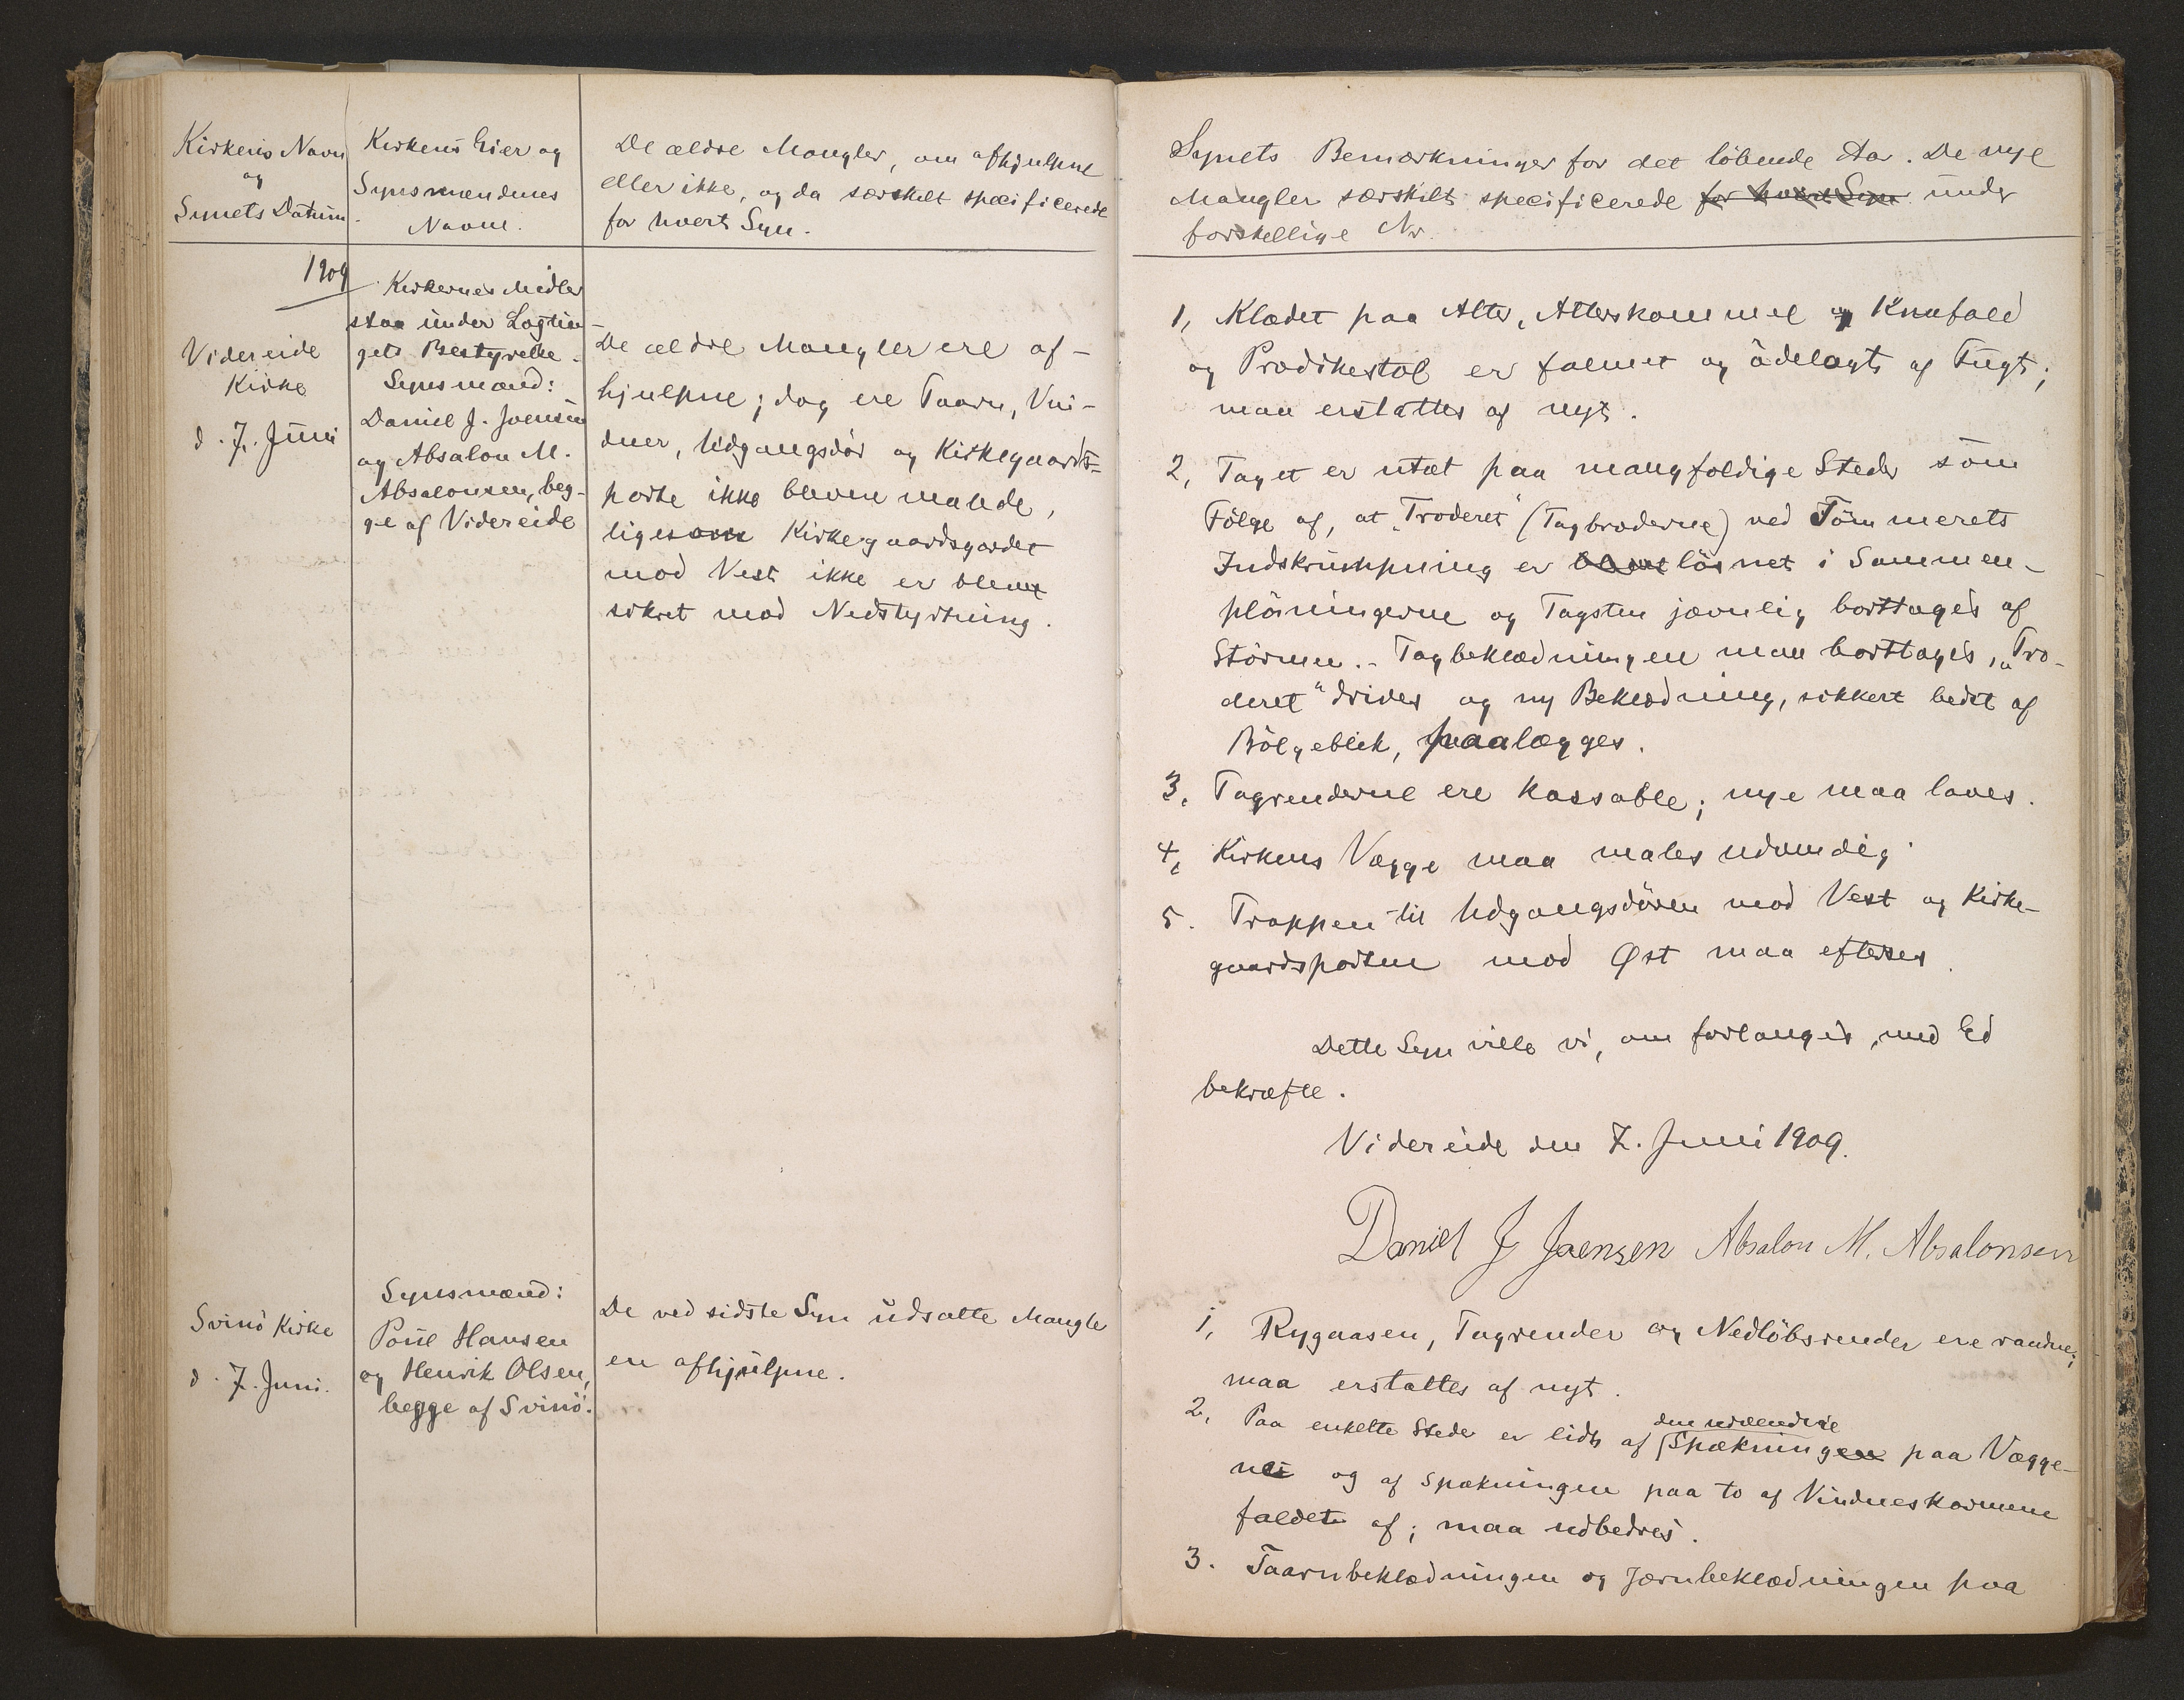 Kirkens Navn
og
Synets Datum.
Kirkens Eier og
Synsmændenes
Navne.
De ældre Mangler, om afhjulpne
eller ikke, og da særskilt specificerede
for hvert Syn.
1909
Videreide
Kirke
d. 7. Juni
Kirkernes Midler
staa under Lagtin-
gets Bestyrelse.
Synsmænd:
Daniel J. Joensen
og Absalon M.
Absalonsen, beg-
ge af Videreide
De ældre Mangler ere af-
hjulpne; dog ere Taarn, Vin-
duer, Udgangsdør og Kirkegaards-
porte ikke blevne malede,
ligesom Kirkegaardsgærdet
mod Vest ikke er blevet
sikret mod Nedstyrtning.
Svinö Kirke
d. 7. Juni.
Synsmænd:
Poul Hansen
og Henrik Olsen,
begge af Svinö.
De ved sidste Syn udsatte Mangler
ere afhjulpne.
Synets Bemærkninger for det löbende Aar. De nye
Mangler særskilt specificerede for hvert Syn under
forskellige Nr.
1, Klædet paa Alter, Alterskammel og Knæfald
og Prædikestol er falmet og ödelagt af Fugt;
maa erstattes af nyt.
2, Taget er utæt paa mangfoldige Steder som
Fölge af, at "Troderet" (Tagbræderne) ved Tömmerets
Indskrumpning er blevet lösnet i Sammen-
plöiningerne og Tagsten jævnlig borttages af
Stormen. - Tagbeklædningen maa borttages, "Tro-
deret" drives og ny Beklædning, sikkert bedst af
Bölgeblik, paalægges.
3, Tagrenderne ere kassable; nye maa laves.
4, Kirkens Vægge maa males udvendig
5. Trappen til Udgangsdören mod Vest og Kirke-
gaardsporten mod Øst maa efterses.
Dette Syn ville vi, om forlanges, med Ed
bekræfte.
Videreide den 7. Juni 1909.
Daniel J Joensen Absalon M. Absalonsen
1, Rygaasen, Tagrender og Nedlöbsrender ere raadne;
maa erstattes af nyt.
den udvendige
2, Paa enkelte Steder er lidt af Spækningen paa Vægge-
ne og af Spækningen paa to af Vindueskarmene
faldet af; maa udbedres.
3. Taarnbeklædningen og Jærnbeklædningen paa